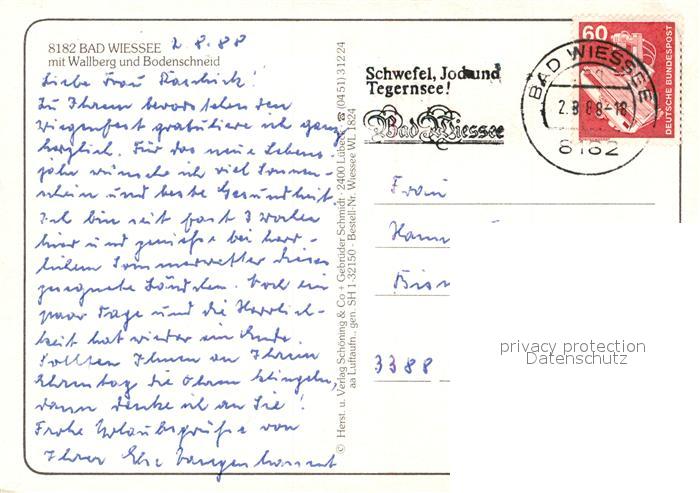 8182 BAD WIESSEE 2.8.88
mit Wallberg und Bodenschneid
Liebe Frau
Zu Ihrem bevorstehenden
Wiegenfest gratuliere ich ganz
herzlich. Für das neue Lebens-
jahr wünsche ich viel Sonnen-
schein und beste Gesundheit.
Ich bin seit fast 3 Wochen
hier und genieße bei herr-
lichem Sommerwetter dieses
gesegnete Ländchen. Noch ein
paar Tage und die Herrlich-
keit hat wieder ein Ende.
Sollten Ihnen an Ihrem
Ehrentag die Ohren klingeln,
dann denke ich an Sie!
Frohe Urlaubsgrüße von
Ihrer
© Herst. u. Verlag Schöning & Co + Gebrüder Schmidt · 2400 Lübeck ☎ (0451) 31224
aa Luftaufn., gen. SH 1-32150 · Bestell-Nr. Wiessee WL 1824
Schwefel, Jod und
Tegernsee!
Bad Wiessee
BAD WIESSEE
2.8.88-18
8182
60
DEUTSCHE BUNDESPOST
Frau
3388
privacy protection
Datenschutz